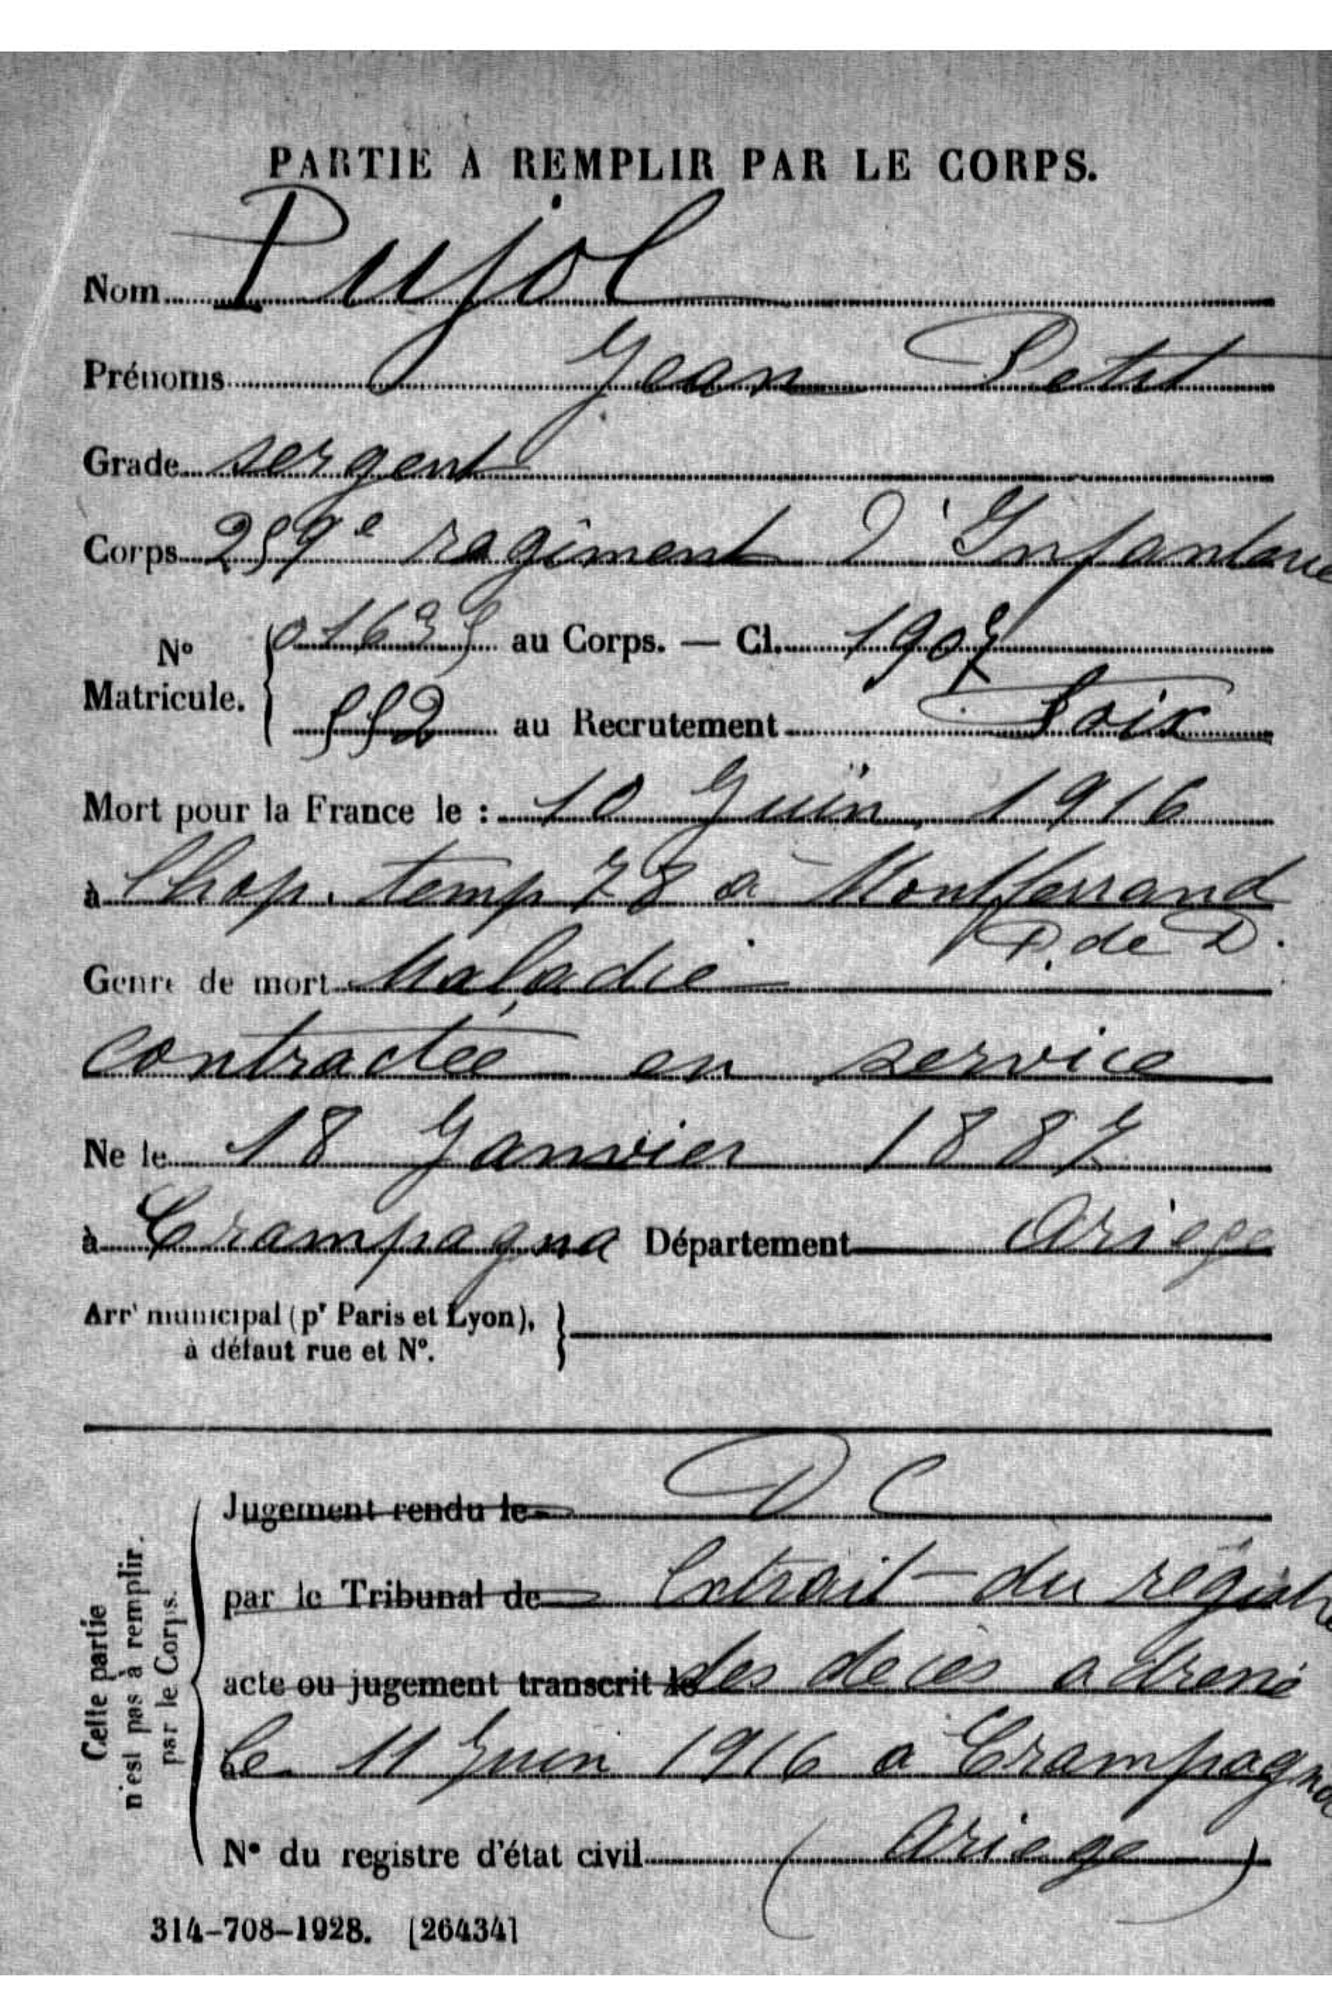 PARTIE À REMPLIR PAR LE CORPS.
Nom Pujol
Prénoms Jean Petit
Grade sergent
Corps 259e regiment d'Infanterie
N° Matricule. 01635 au Corps. — Cl. 1907
552 au Recrutement Foix
Mort pour la France le : 10 Juin 1916
à l'hop. temp 78 a Montferrand
P. de D.
Genre de mort Maladie
contractée en service
Né le 18 Janvier 1887
à Crampagna Département Ariege
Arrt municipal (pr Paris et Lyon),
à défaut rue et N°.
D C
Jugement rendu le
par le Tribunal de Extrait du registre
acte ou jugement transcrit le des deces adressé
le 11 Juin 1916 a Crampagna
N° du registre d'état civil (Ariege)
Cette partie
n'est pas à remplir
par le Corps.
314-708-1928. [26434]